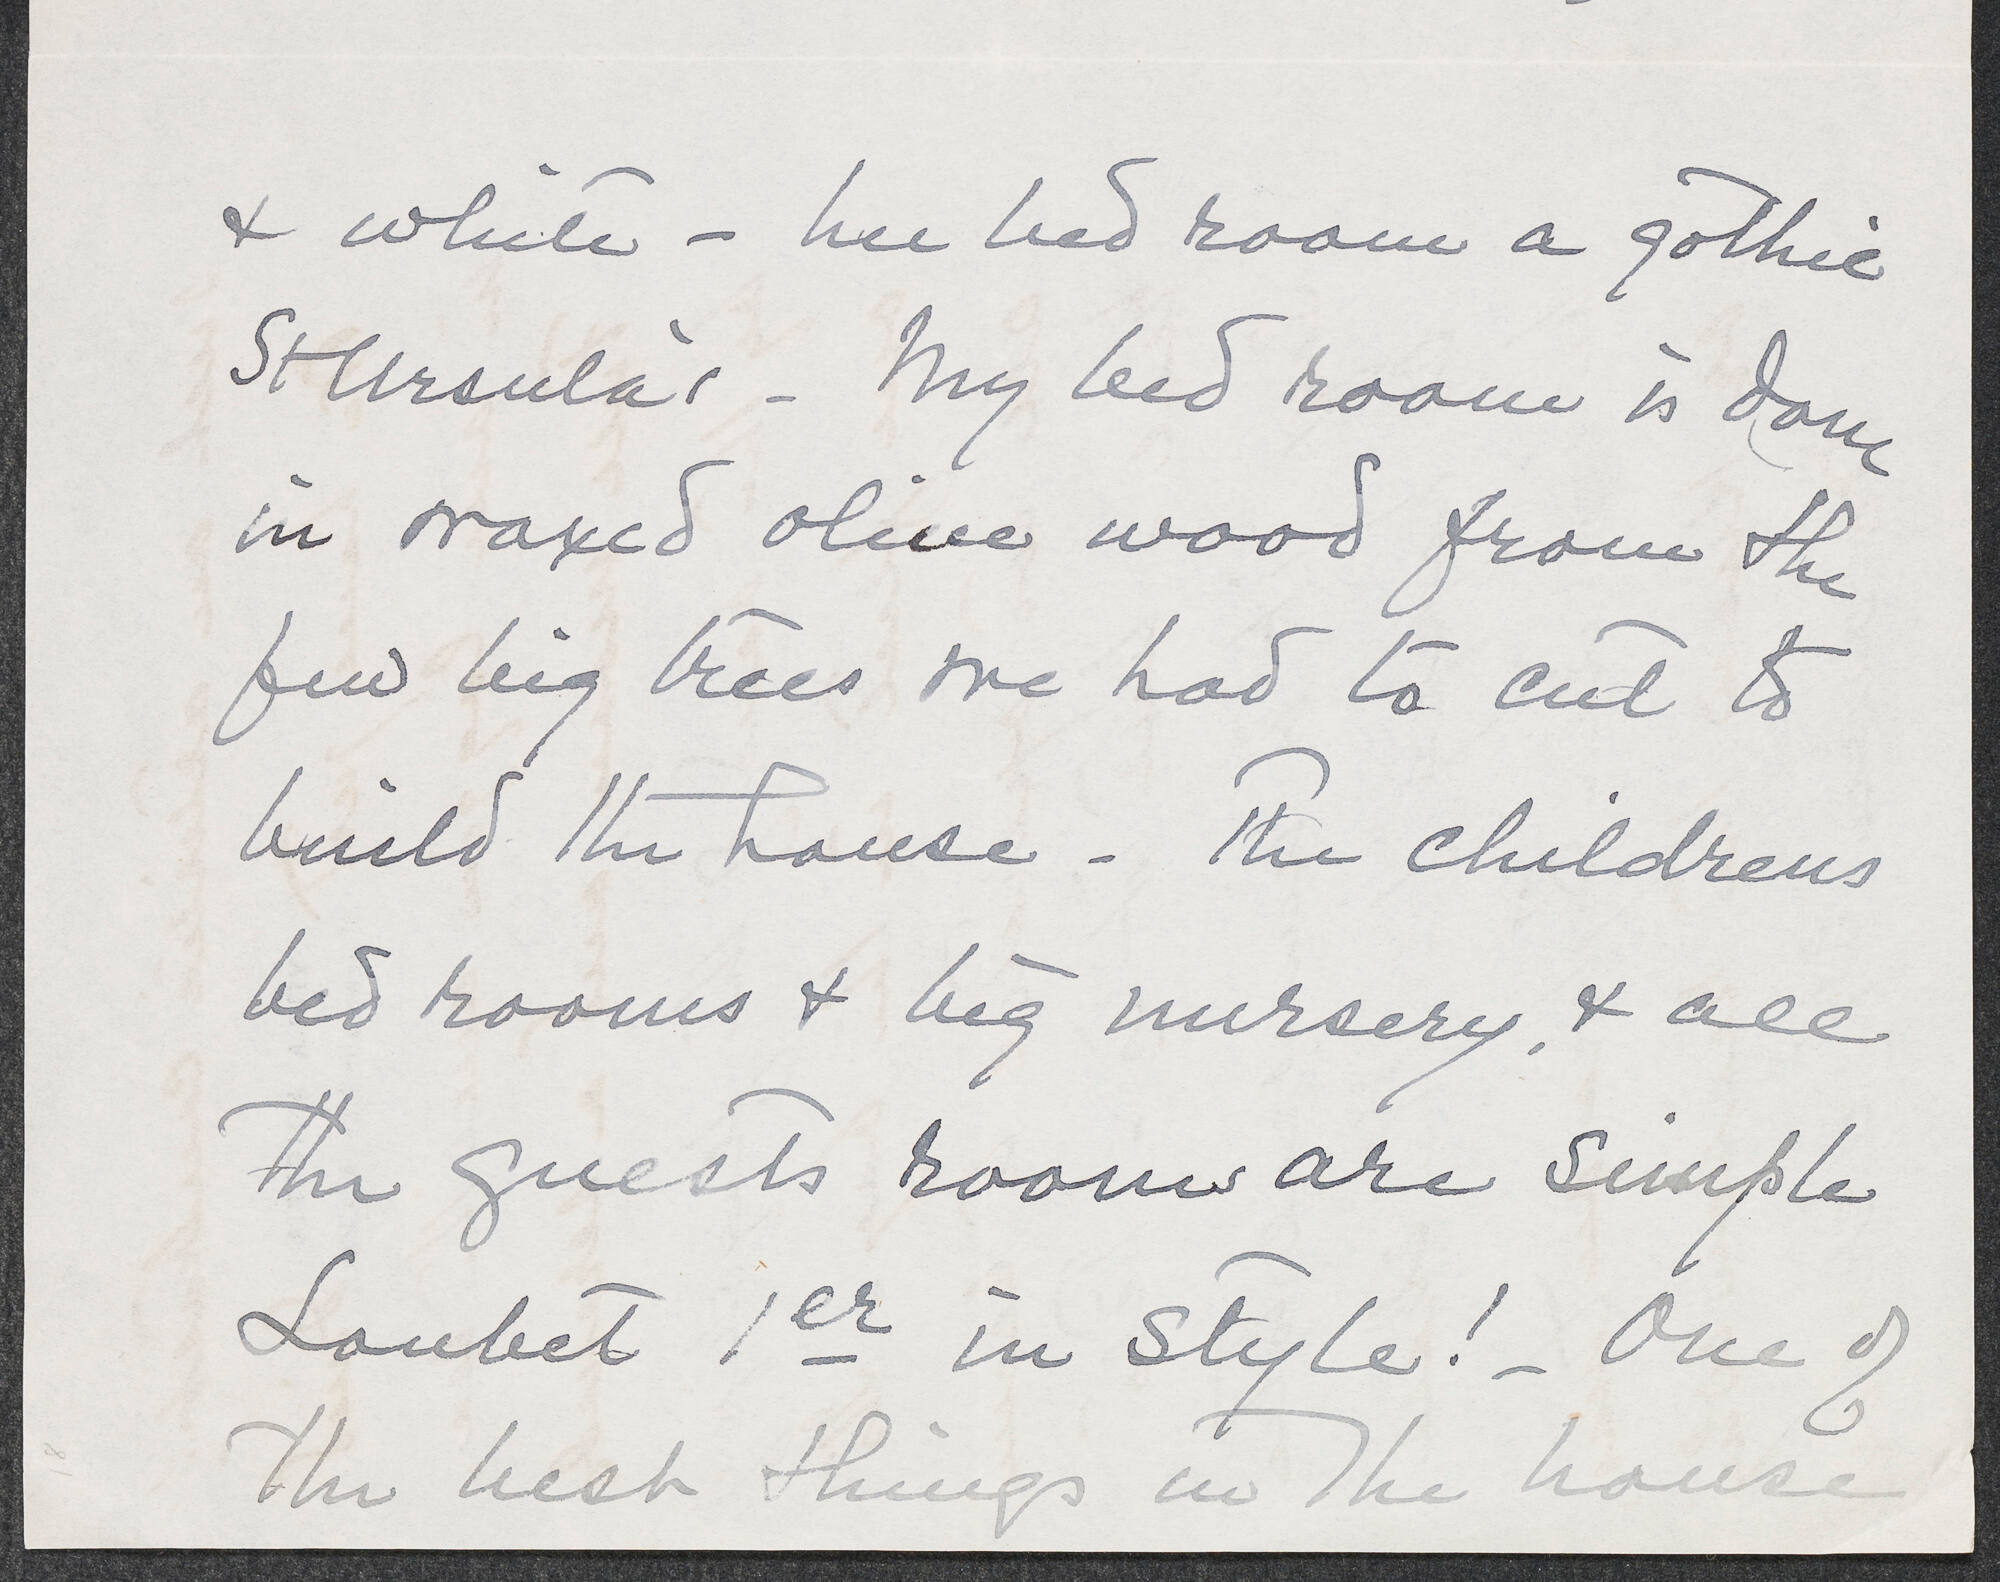 & white - her bed room a gothic
St Ursula's - My bed room is done
in waxed olive wood from the
few big trees we had to cut to
build the house - The childrens
bed rooms & big nursery, & all
the guests rooms are simple
Loubet 1er in style! - One of
the best things in the house